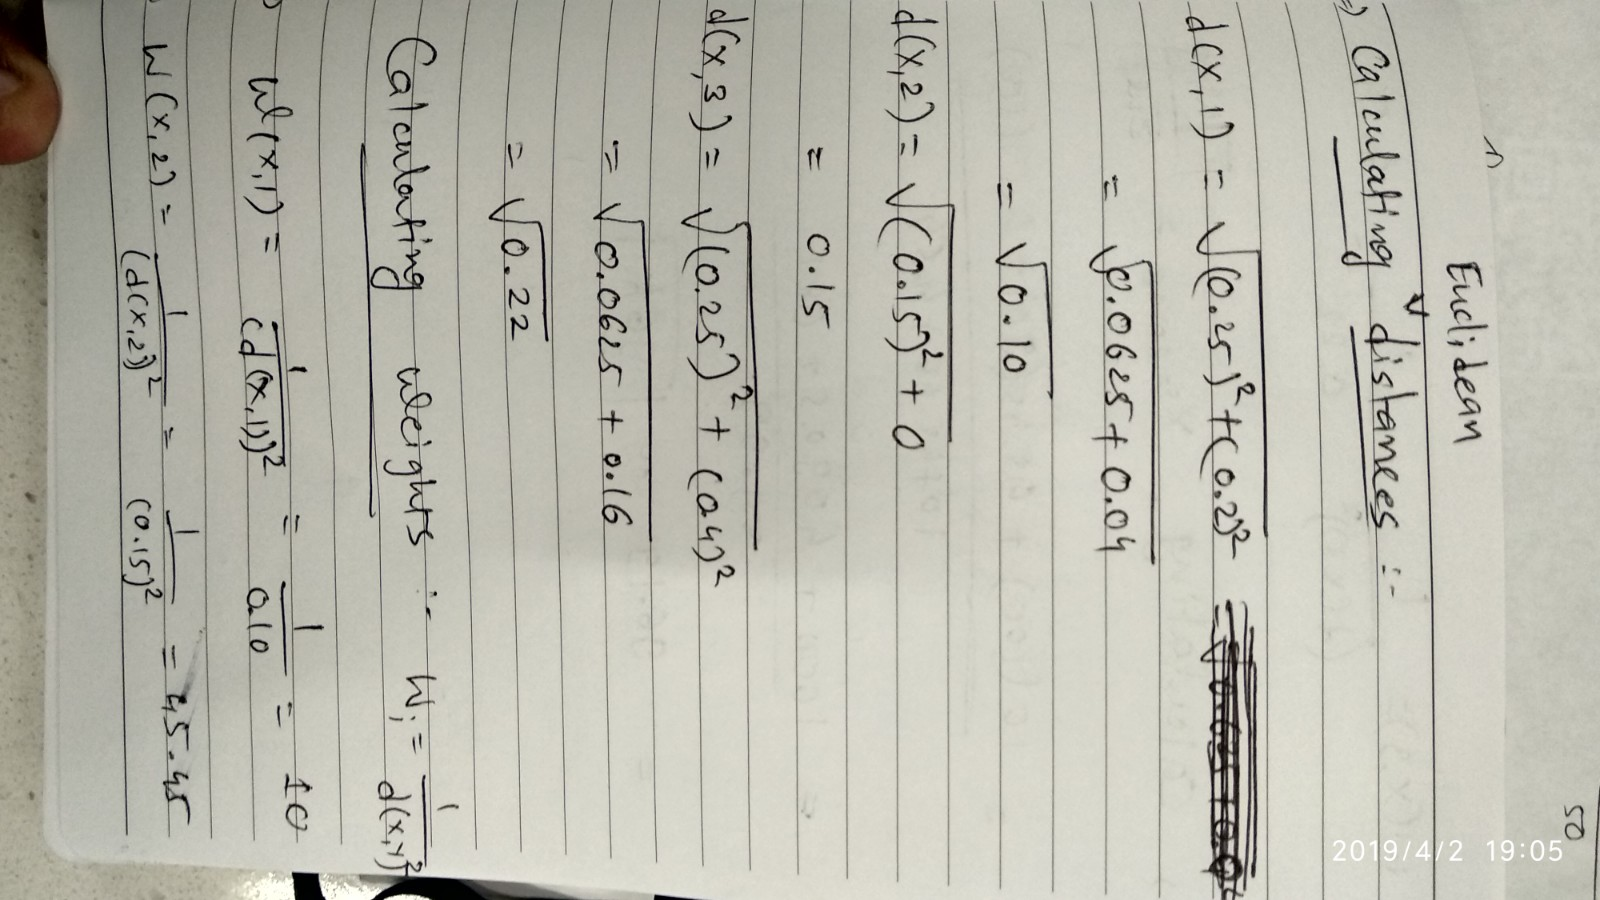 50
Euclidean
=) Calculating distances :-
d(x,1) = √(0.25)² + (0.2)²
= √0.0625 + 0.04
= √0.10
d(x,2) = √(0.15)² + 0
= 0.15
d(x,3) = √(0.25)² + (0.4)²
= √0.0625 + 0.16
= √0.22
Calculating weights :- Wi = 1/d(x,y)²
W(x,1) = 1/(d(x,1))² = 1/0.10 = 10
W(x,2) = 1/(d(x,2))² = 1/(0.15)² = 45.45
2019/4/2 19:05